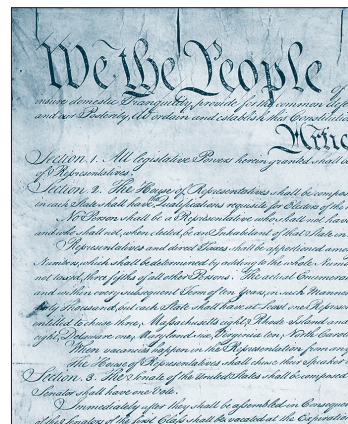 We the People of
insure domestic Tranquility, provide for the common defe
and our Posterity, do ordain and establish this Constitutio
Artic
Section. 1. All legislative Powers herein granted shall b
of Representatives.
Section. 2. The House of Representatives shall be compos
in each State shall have Qualifications requisite for Electors of the
No Person shall be a Representative who shall not have
and who shall not, when elected, be an Inhabitant of that State in
Representatives and direct Taxes shall be apportioned amon
Numbers, which shall be determined by adding to the whole Num
not taxed, three fifths of all other Persons. The actual Enumera
and within every subsequent Term of ten Years, in such Manner
thirty Thousand, but each State shall have at Least one Represen
entitled to chuse three, Massachusetts eight, Rhode Island and
eight, Delaware one, Maryland six, Virginia ten, North Caroli
When vacancies happen in the Representation from any
The House of Representatives shall chuse their Speaker
Section. 3. The Senate of the United States shall be composed
Senator shall have one Vote.
Immediately after they shall be assembled in Consequen
of the Senators of the first Class shall be vacated at the Expiration